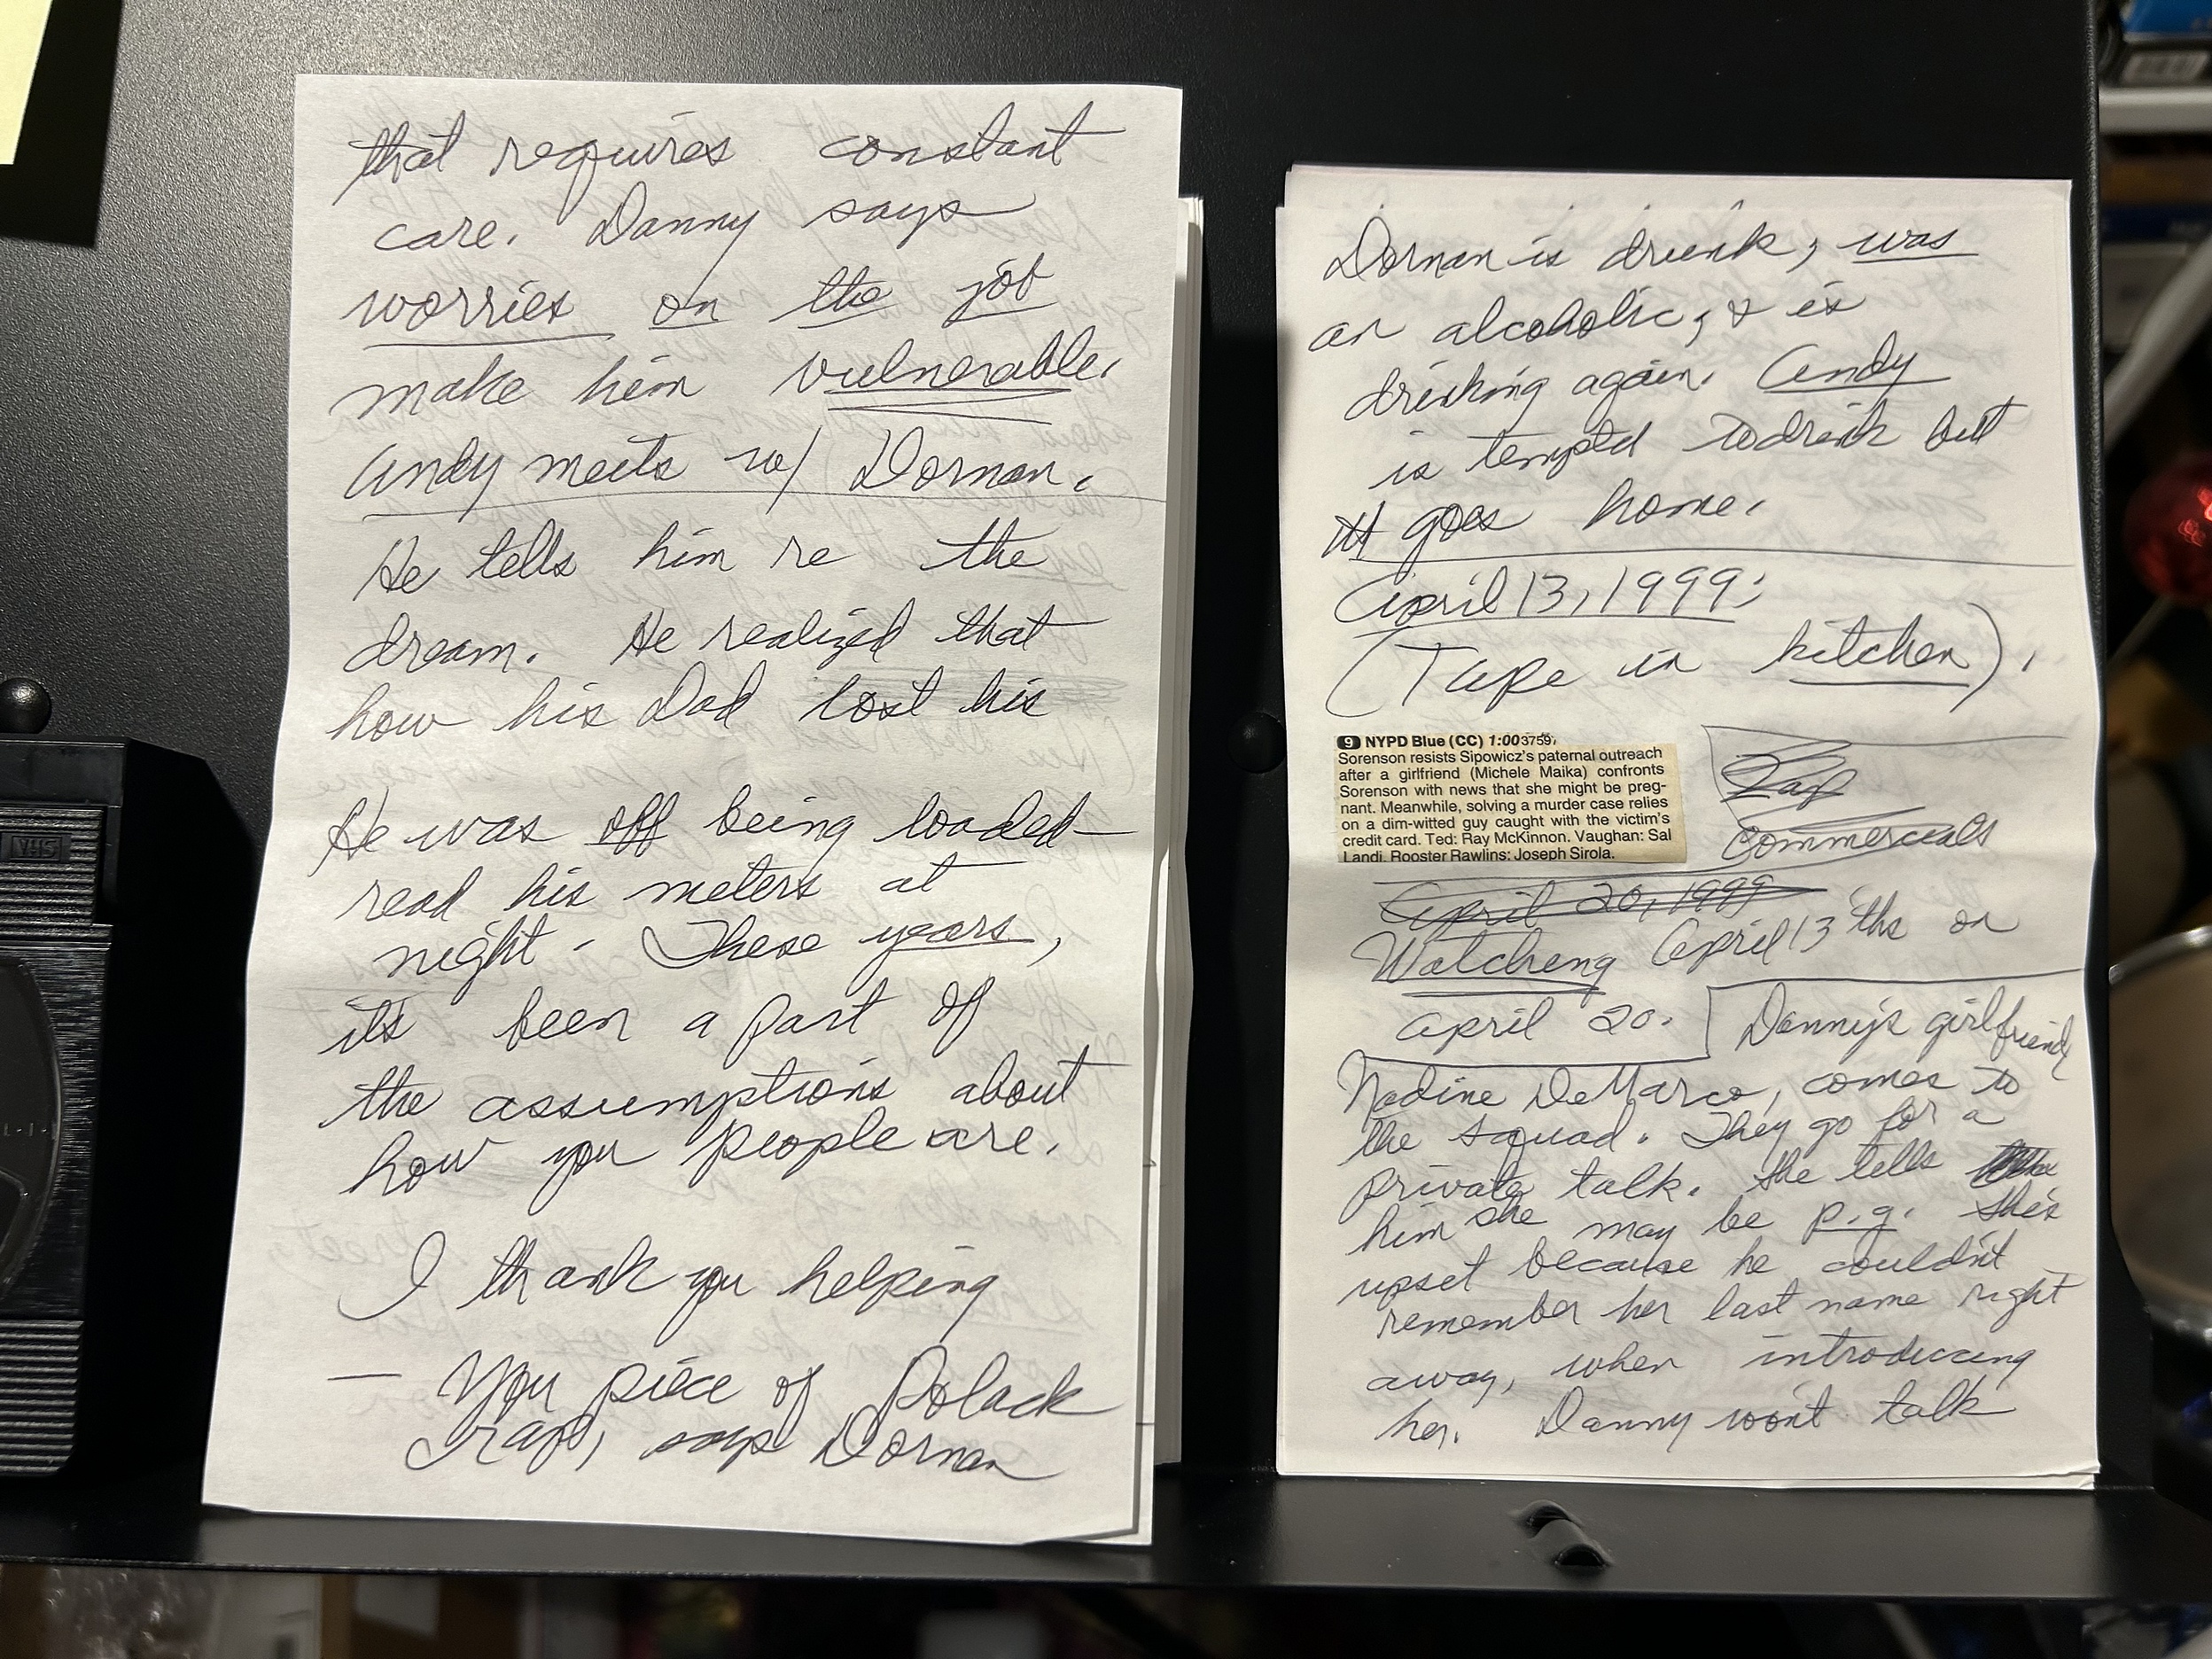 that requires constant
care. Danny says
worries on the job
make him vulnerable.
Andy meets w/ Dornan.
He tells him re the
dream. He realized that
how his Dad lost his
He was off being loaded
read his meters at
night - These years,
it's been a part of
the assumptions about
how you people are.
I thank you helping
— You piece of Polack
crap, says Dornan
Dornan is drunk, was
an alcoholic, & is
drinking again. Andy
is temptd to drink but
goes home.
April 13, 1999:
(Tape in kitchen).
9 NYPD Blue (CC) 1:00 3759
Sorenson resists Sipowicz's paternal outreach
after a girlfriend (Michele Maika) confronts
Sorenson with news that she might be preg-
nant. Meanwhile, solving a murder case relies
on a dim-witted guy caught with the victim's
credit card. Ted: Ray McKinnon. Vaughan: Sal
Landi. Rooster Rawlins: Joseph Sirola.
Zap
Commercials
April 20, 1999
Watching April 13'ths on
April 20.
Danny's girlfriend
Nadine DeMarco, comes to
the squad. They go for a
private talk. She tells
him she may be p.g. She's
upset because he couldn't
remember her last name right
away, when introducing
her. Danny won't talk
VHS